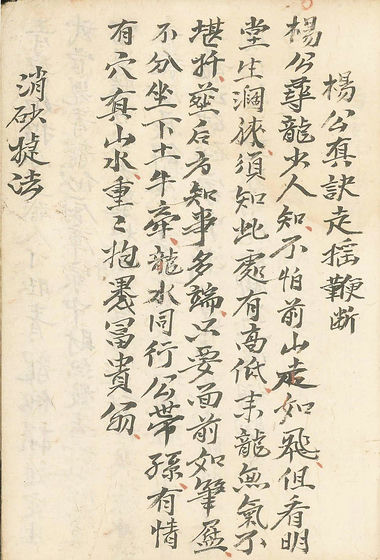 楊公真訣走揺鞭断
楊公尋龍少人知不怕前山走如飛但看明
堂生濶狹須知此處有高低来龍無氣不
堪扦葬后方知事多端只要面前如筆
不分坐下土牛奔龍水同行公帶孫有情
有穴真山水重〻抱裹冨貴翁
消砂捷法